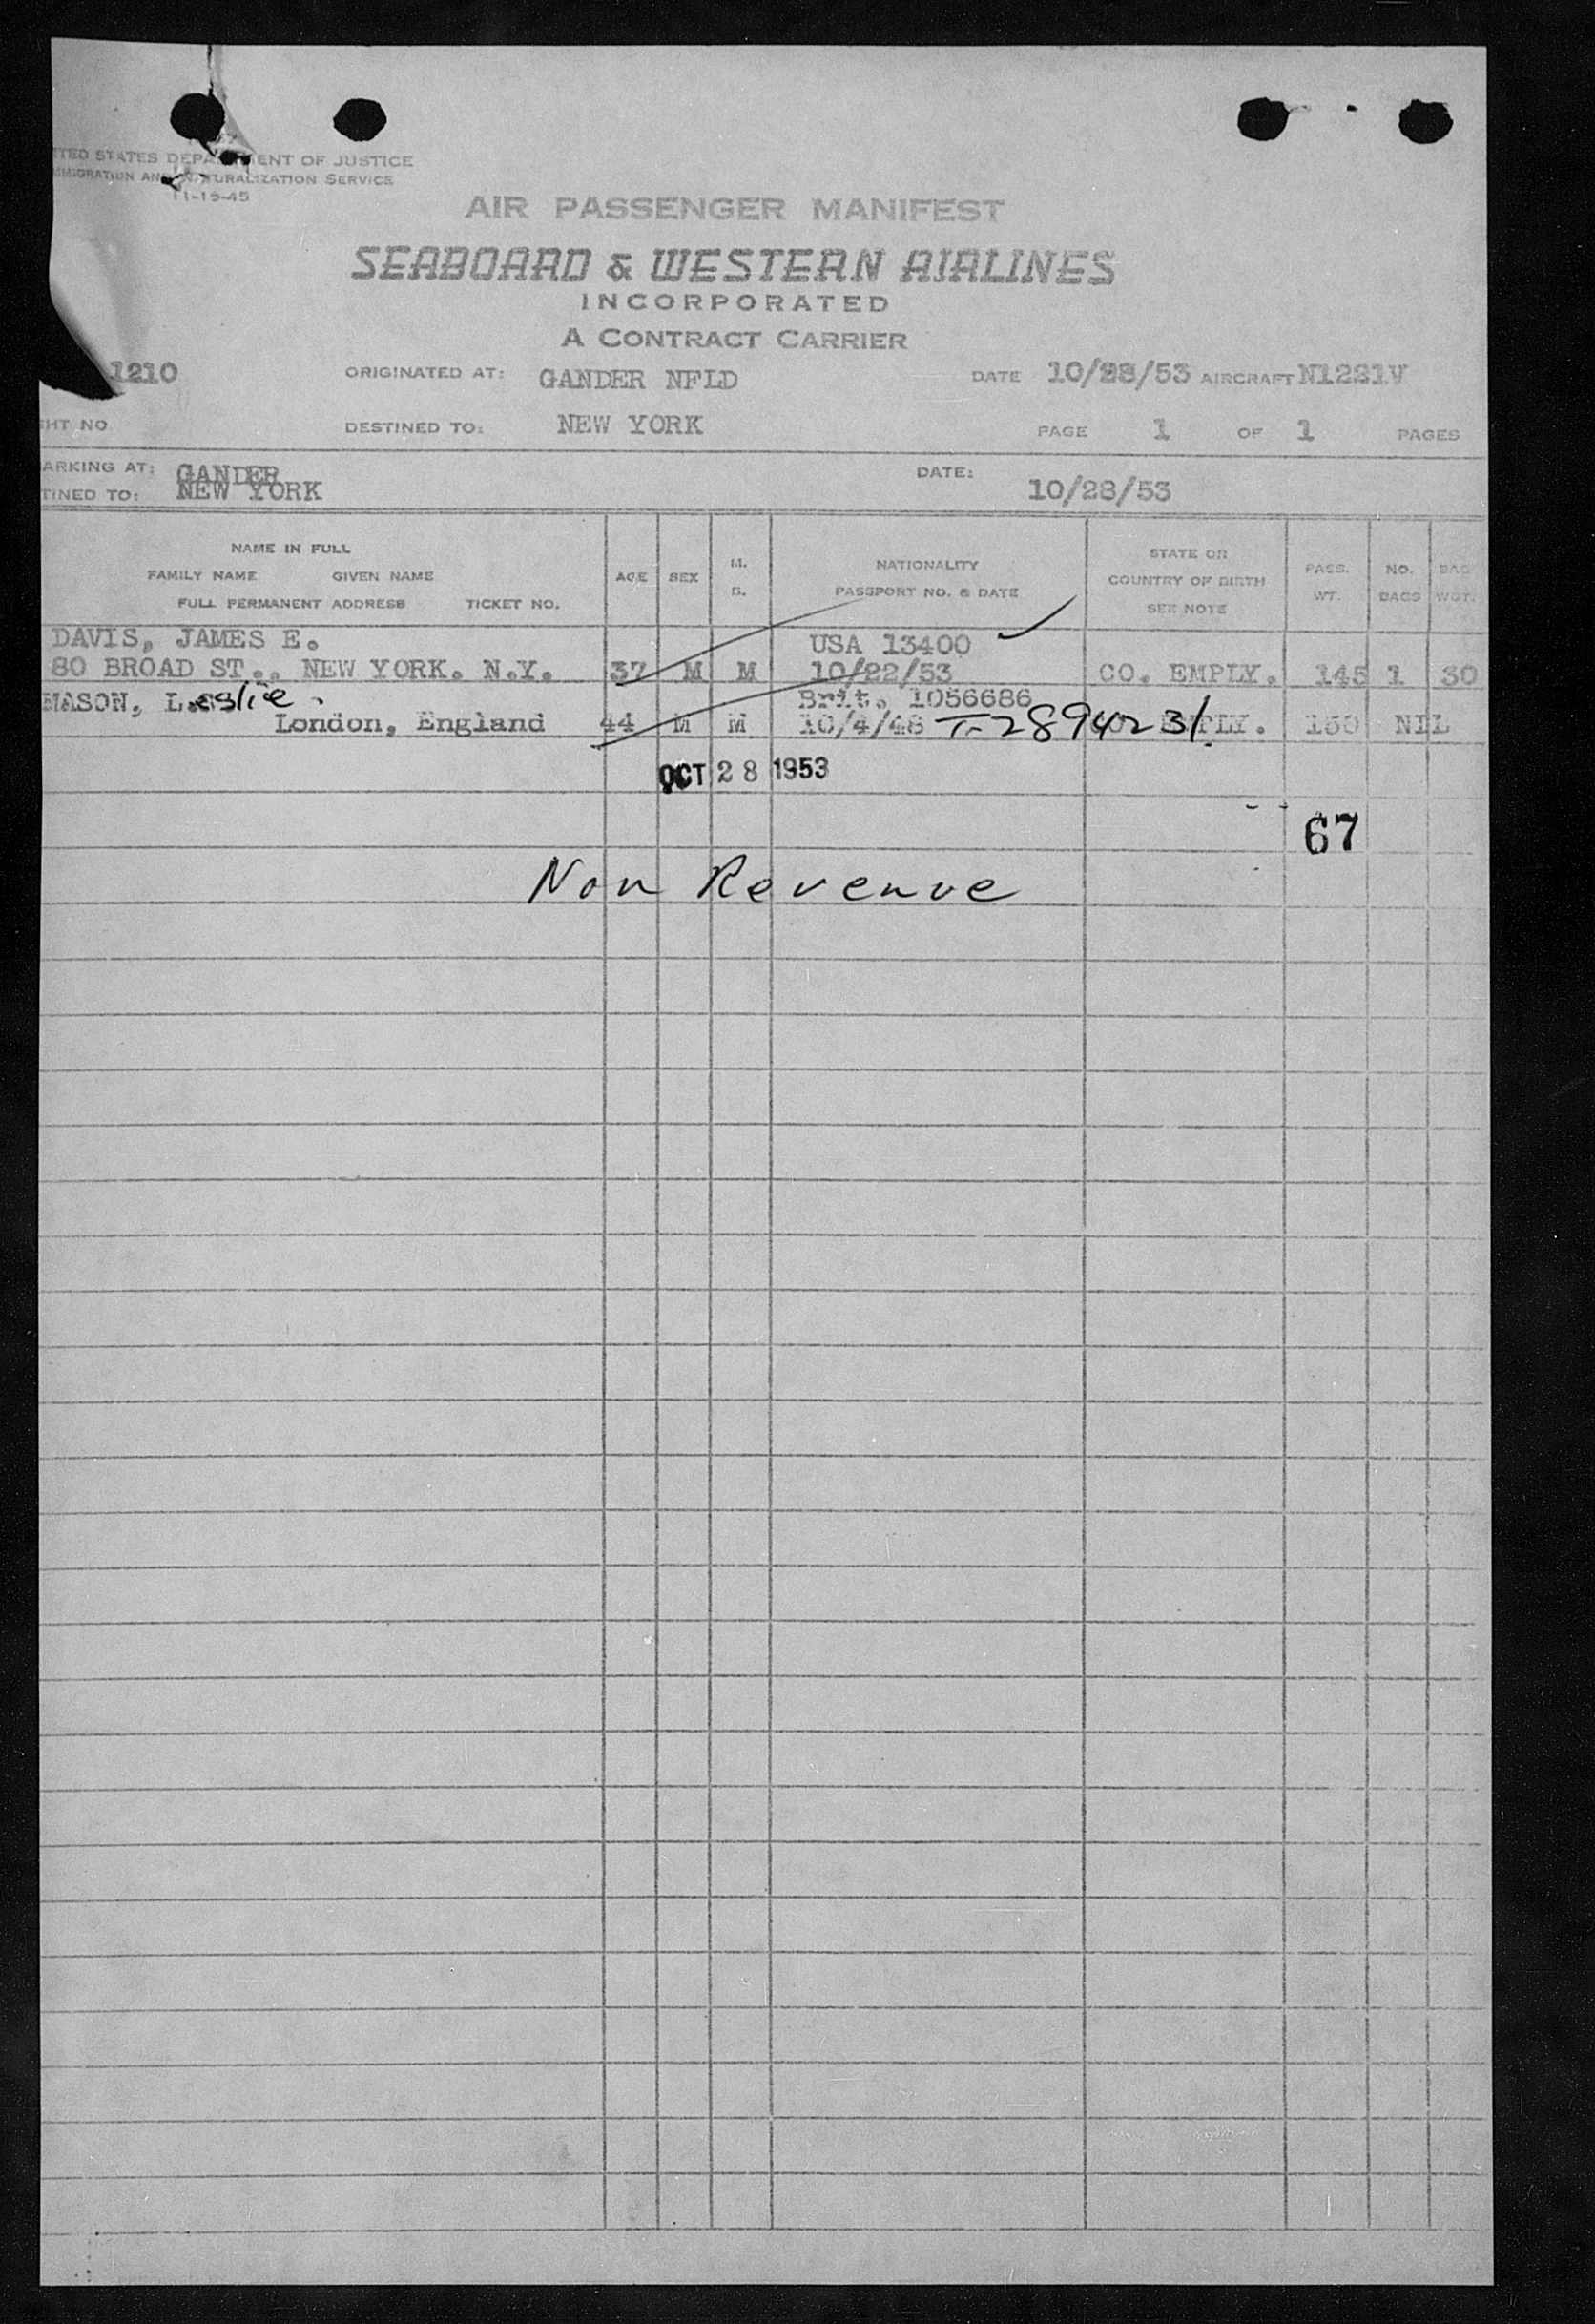 STATES DEPARTMENT OF JUSTICE
IMMIGRATION AND NATURALIZATION SERVICE
11-15-45
AIR PASSENGER MANIFEST
SEABOARD & WESTERN AIRLINES
INCORPORATED
A CONTRACT CARRIER
1210 ORIGINATED AT: GANDER NFLD DATE 10/28/53 AIRCRAFT N1221V
HT NO DESTINED TO: NEW YORK PAGE 1 OF 1 PAGES
ARKING AT: GANDER DATE:
TINED TO: NEW YORK 10/28/53
NAME IN FULL
FAMILY NAME GIVEN NAME
FULL PERMANENT ADDRESS TICKET NO.
AGE
SEX
M.
NATIONALITY
PASSPORT NO. & DATE
STATE OR
COUNTRY OF BIRTH
SEE NOTE
PASS.
WT.
NO.
BAGS
BAG
WGT.
DAVIS, JAMES E. USA 13400
80 BROAD ST., NEW YORK. N.Y. 37 M M 10/22/53 CO. EMPLY. 145 1 30
MASON, Leslie. Brit. 1056686
London, England 44 M M 10/4/48 T-2894231 EMPLY. 150 NIL
OCT 28 1953
67
Non Revenue